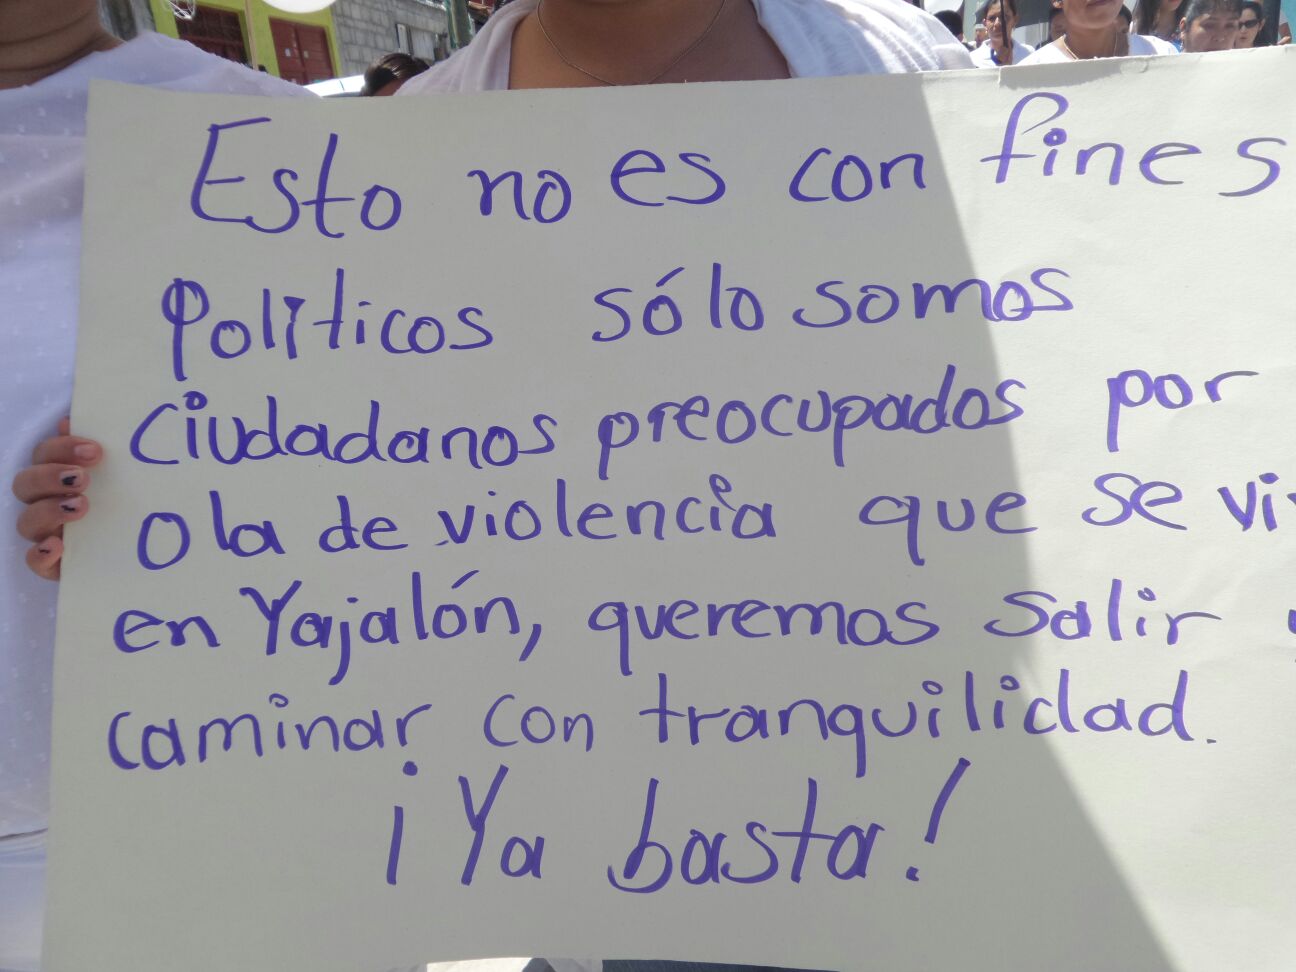 Esto no es con fines
políticos sólo somos
ciudadanos preocupados por
ola de violencia que se
en Yajalón, queremos salir
caminar con tranquilidad.
¡Ya basta!